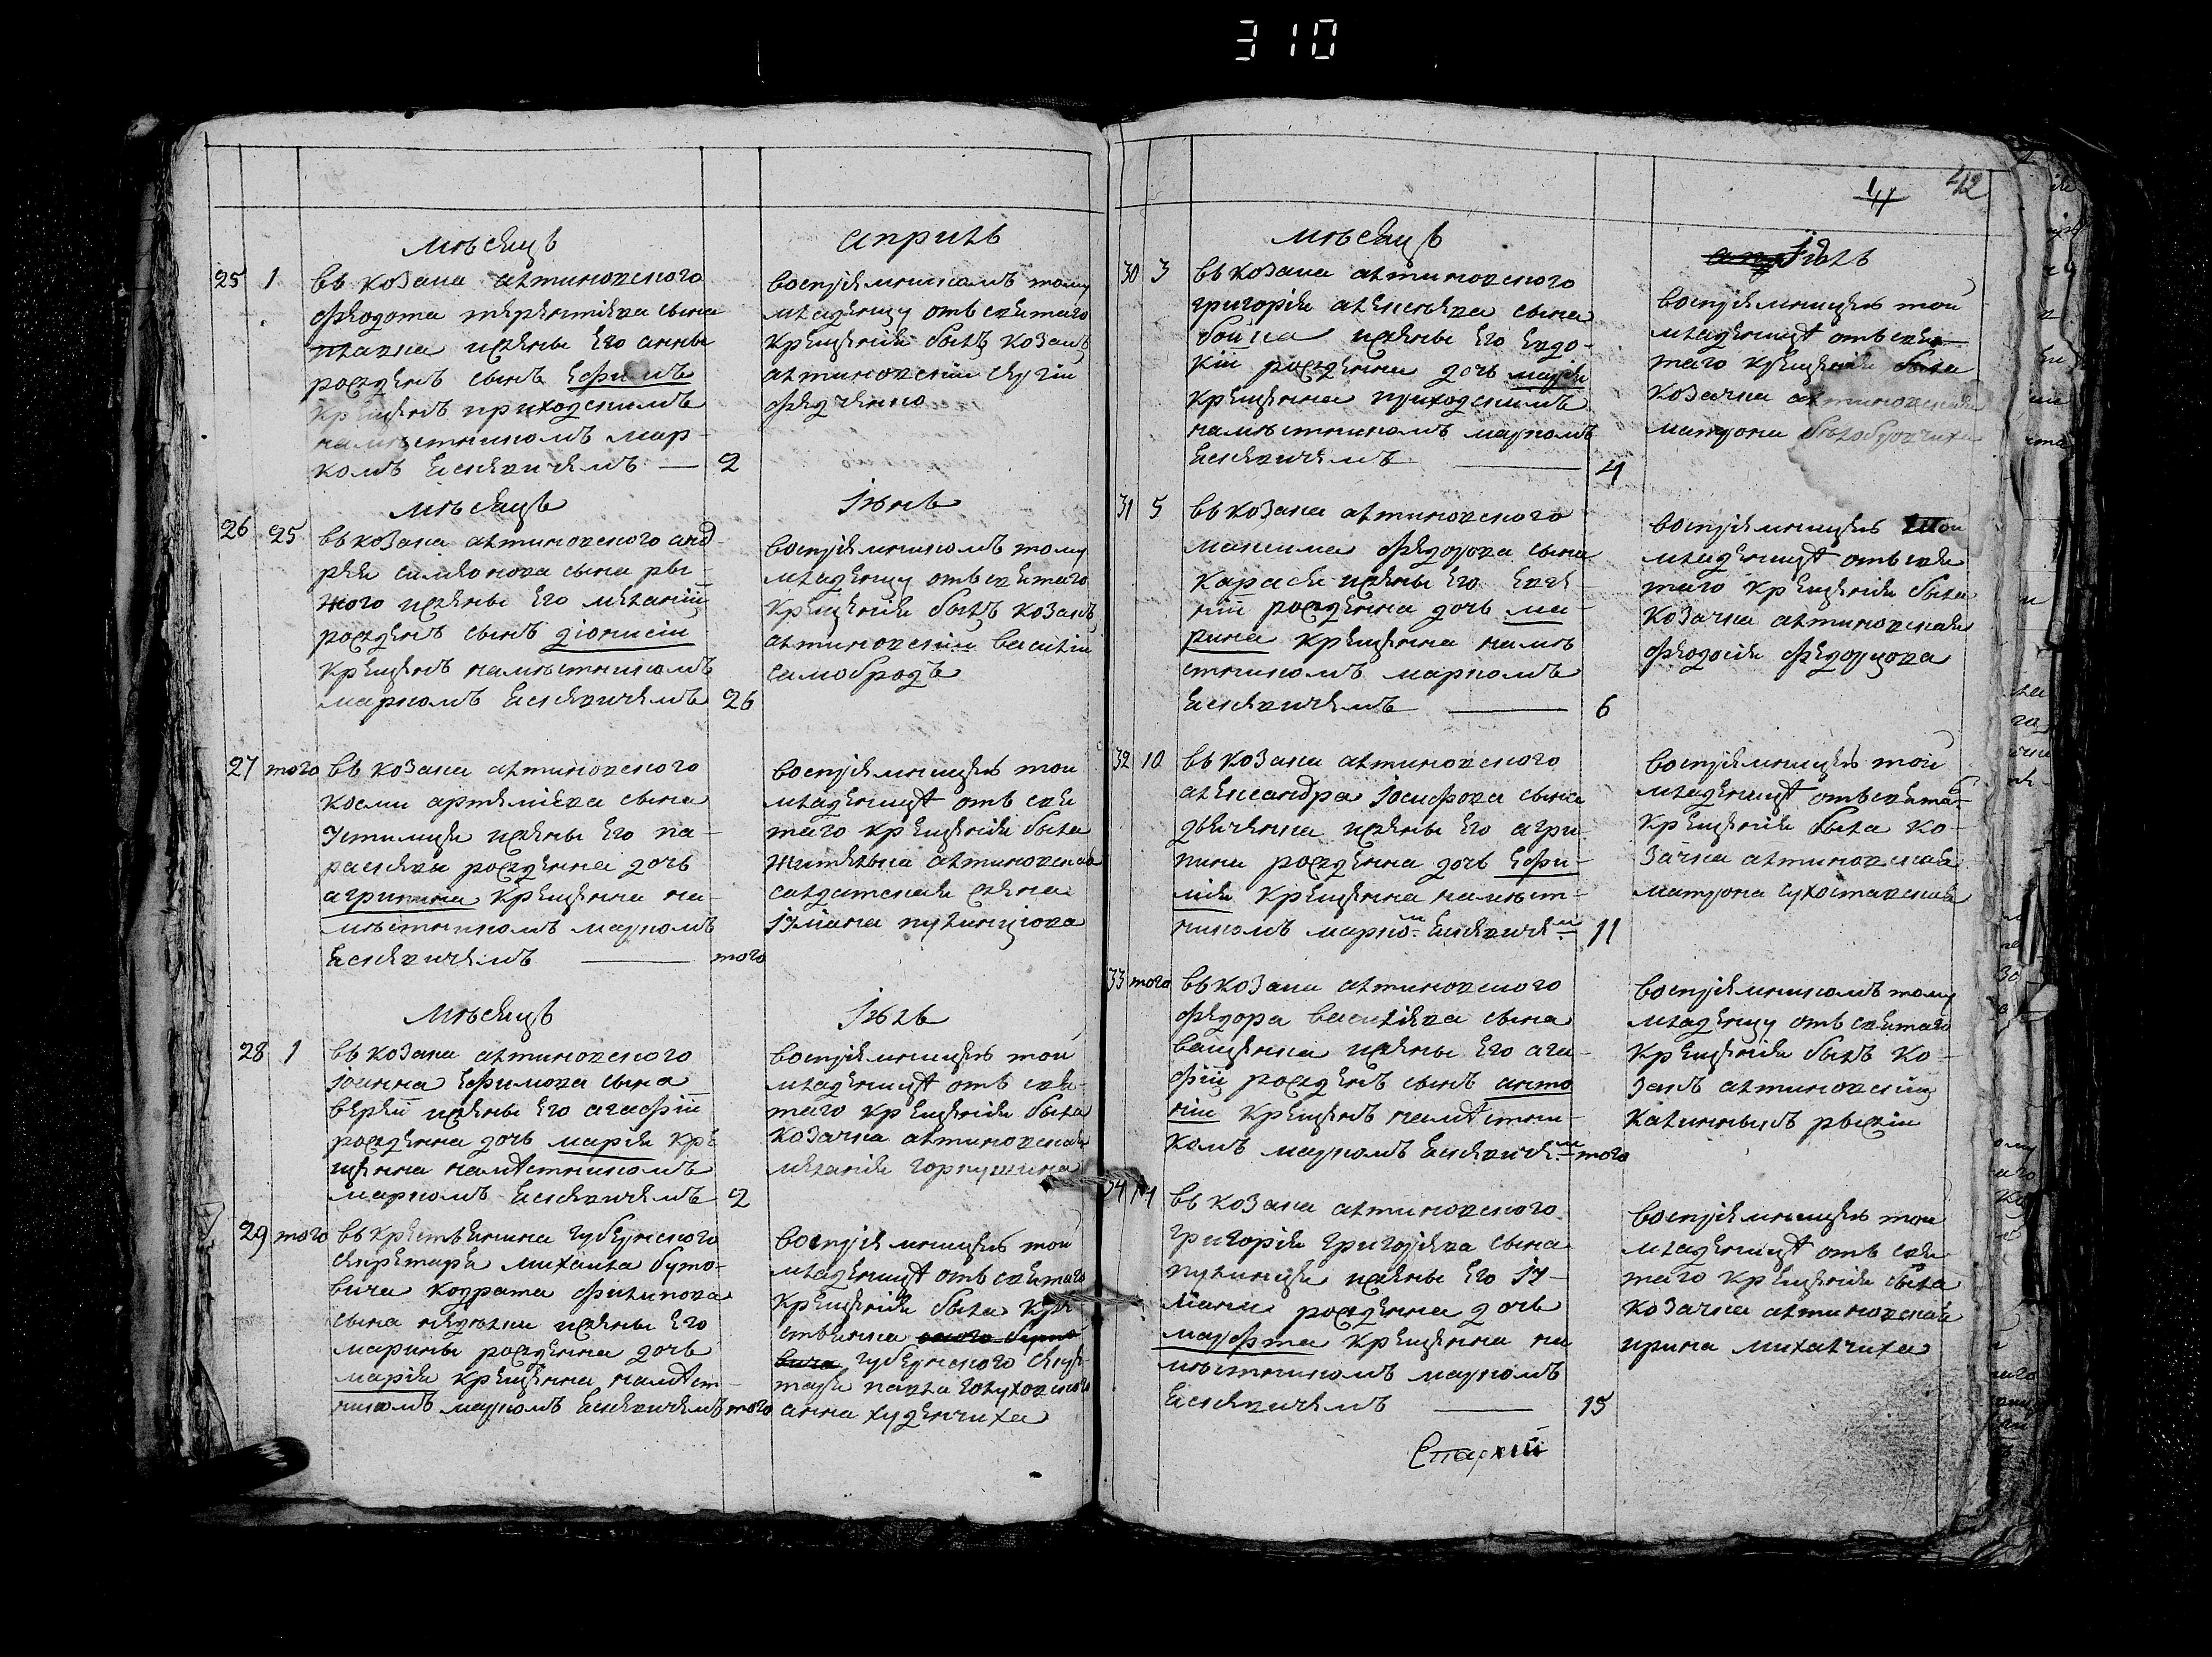 310
мѣсяцъ
апріль
25 1 въ козака алтиновского
феодота терентіева сына
павка жены его анны
рожденъ сынъ ефимъ
крещенъ приходскимъ
намѣстникомъ мар-
комъ Еснѣвичемъ — 2
воспріемникомъ тому
младенцу отъ святаго
крещенія былъ козакъ
алтиновскіи сергіи
федченко
мѣсяцъ
Іюнь
26 25 въ козака алтиновского анд-
рея симеонова сына ры-
жого жены его меланіи
рожденъ сынъ діонисіи
крещенъ намѣстникомъ
маркомъ Еснѣвичемъ 26
воспріемникомъ тому
младенцу отъ святаго
крещенія былъ козакъ
алтиновскіи василіи
самобродъ
27 того въ козака алтиновского
космы артеміева сына
Устимця жены его па-
раскевы рожденна дочь
агрипина крещенна на-
мѣстникомъ маркомъ
Еснѣвичемъ — того
воспріемницею тои
младеницѣ отъ свя
таго крещенія была
жителька алтиновская
салдатская жена
Іуліана пулинцова
мѣсяцъ
Іюль
28 1 въ козака алтиновского
іоанна Ефимова сына
верѣи жены его агафіи
рожденна дочь марія кре
щенна намѣстникомъ
маркомъ Еснѣвичемъ 2
воспріемницею тои
младеницѣ отъ свя-
таго крещенія была
козачка алтиновская
меланія горпушина
29 того въ крестьянина губернского
секретаря михаила буто-
вича кодрата филипова
сына недѣлки жены его
марины рожденна дочь
марія крещенна намѣст-
никомъ маркомъ Еснѣвичемъ того
воспріемницею тои
младеницѣ отъ святаго
крещенія была кре
стьянка оного буто
вича губернского секре
таря павла голуховского
анна худенчиха
41 42
мѣсяцъ
апр Іюль
30 3 въ козака алтиновского
григорія алексѣева сына
боика жены его евдо-
кіи рожденна дочь марія
крещенна приходскимъ
намѣстникомъ маркомъ
Еснѣвичемъ — 4
воспріемницею тои
младеницѣ отъ свя-
таго крещенія была
козачка алтиновская
матрона бѣлобровчиха
31 5 въ козака алтиновского
максима федорова сына
карася жены его евге
ніи рожденна дочь ма-
рина крещенна намѣ
стникомъ маркомъ
Еснѣвичемъ — 6
воспріемницею тои
младеницѣ отъ свя
таго крещенія была
козачка алтиновская
феодосія федорцова
32 10 въ козака алтиновского
александра Іосифова сына
дяченка жены его агри-
пины рожденна дочь Ефи-
мія крещенна намѣст-
никомъ марко.м Еснѣвиче.м 11
воспріемницею тои
младеницѣ отъ свята-го
крещенія была ко-
зачка алтиновская
матрона сухоставская
33 того въ козака алтиновского
федора василіева сына
ващенка жены его ага-
фіи рожденъ сынъ анто
ніи крещенъ намѣстни-
комъ маркомъ Еснѣвиче.м того
воспріемникомъ тому
младенцу отъ святаго
крещенія былъ ко-
закъ алтиновскіи
калинныкъ рыжіи
34 14 въ козака алтиновского
григорія григоріева сына
пулинця жены его Іу-
ліани рожденна дочь
марфта крещенна на
мѣстникомъ маркомъ
Еснѣвичемъ — 15
воспріемницею тои
младеницѣ отъ свя
таго крещенія была
козачка алтиновская
ирина михалчиха